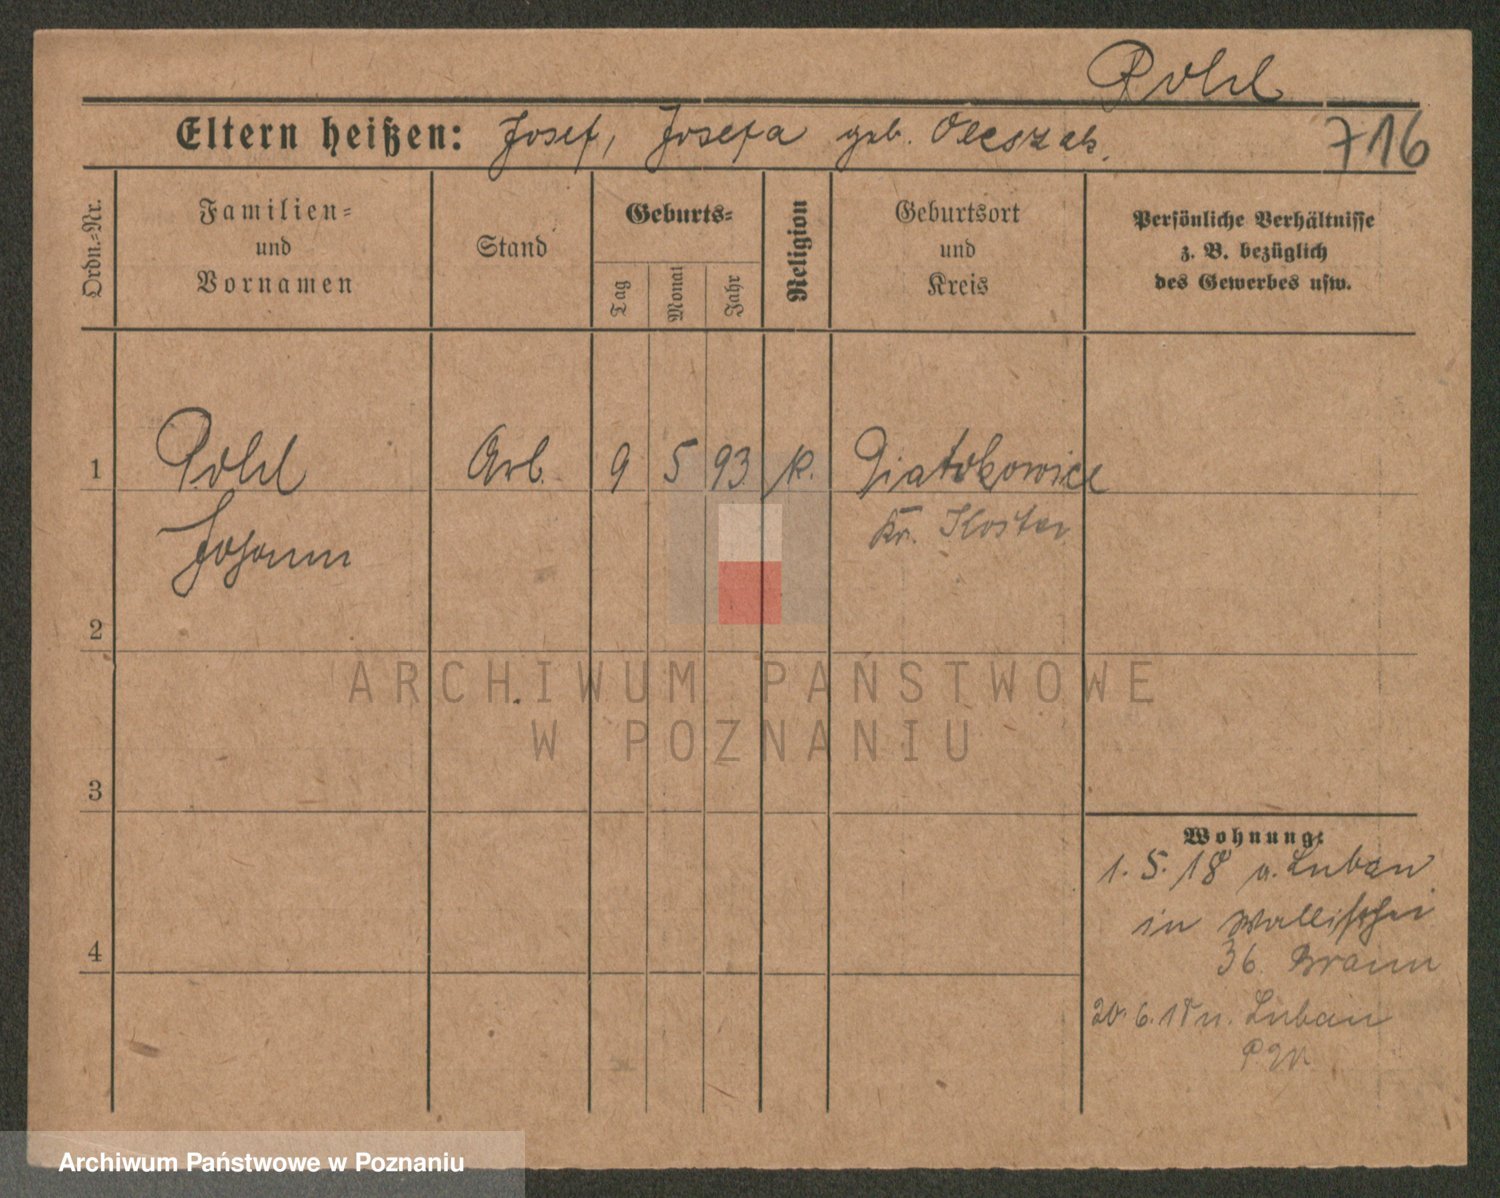 Pohl
Eltern heißen: Josef, Josefa geb. Oleszak.
716
Ordn.-Nr.
Familien-
und
Vornamen
Stand
Geburts-
Tag
Monat
Jahr
Religion
Geburtsort
und
Kreis
Persönliche Verhältnisse
z. B. bezüglich
des Gewerbes usw.
1
Pohl
Arb.
9
5
93
k.
Piatkowice
Johann
Kr. Koster
2
ARCHIWUM PAŃSTWOWE
W POZNANIU
3
Wohnung:
1. 5. 18 a. Luban
in Wallischei
36. Braun
4
20. 6. 18 n. Luban
Archiwum Państwowe w Poznaniu